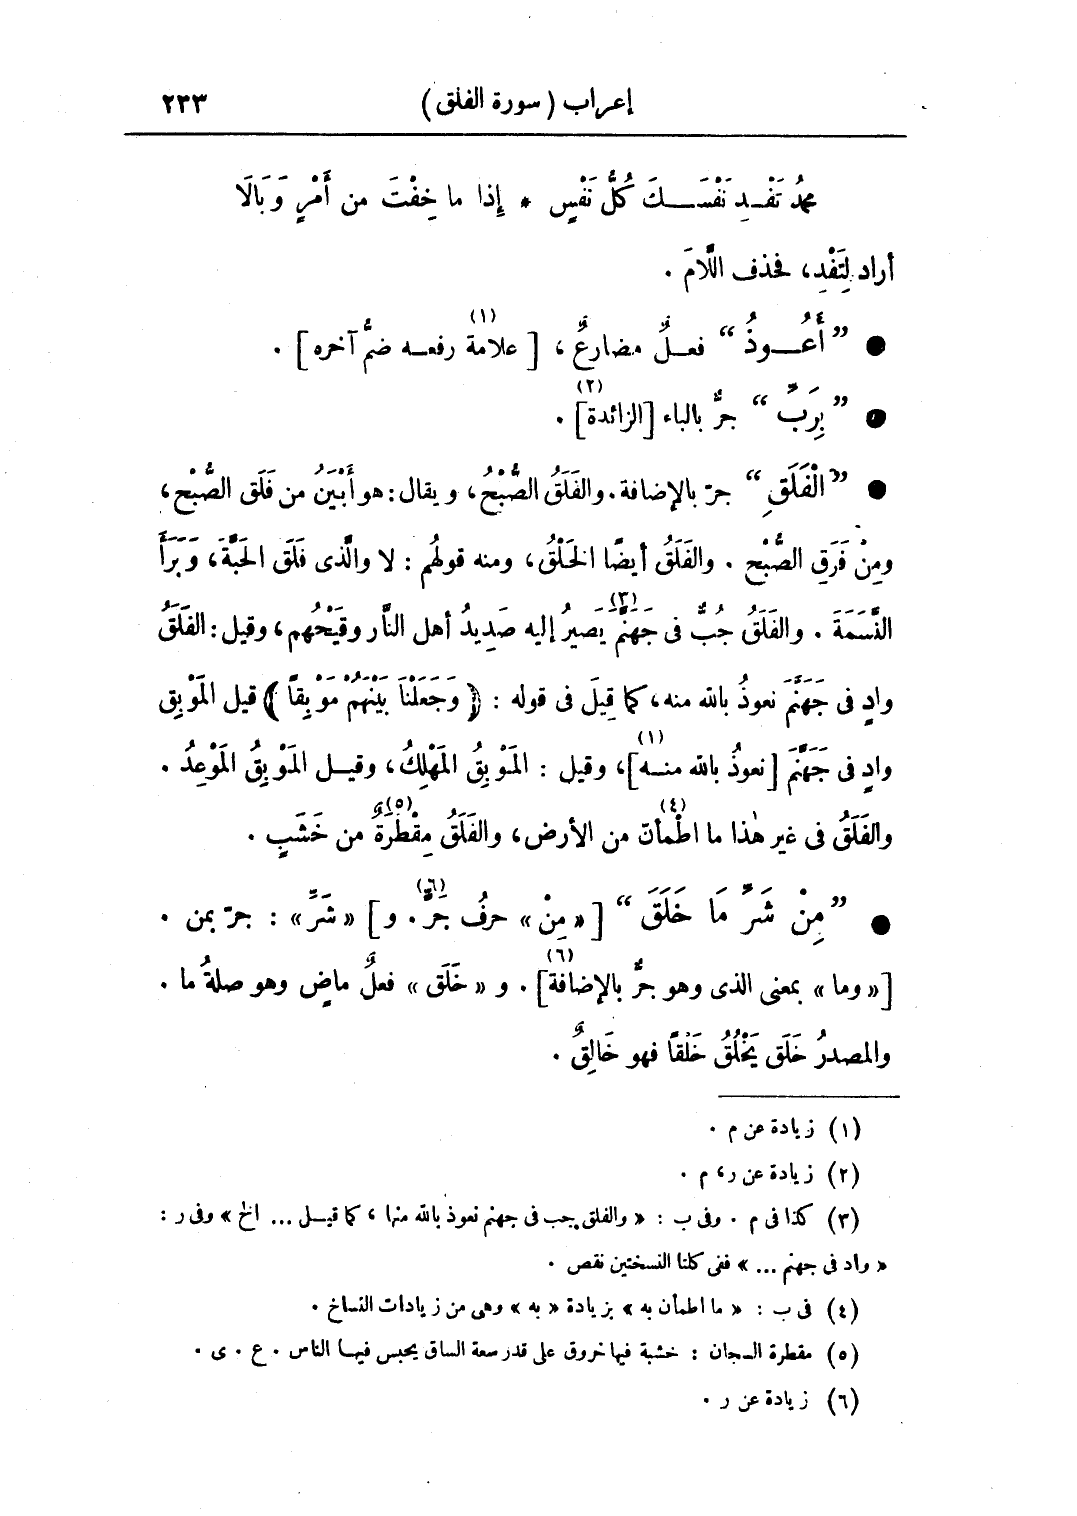 إعراب (سورة الفلق) ٢٣٣
محمدُ تَفْـدِ نَفْسَـــكَ كُلُّ نَفْسٍ * إِذا ما خِفْتَ من أَمْرٍ وَبَالَا
أراد لِتَفْدِ، فحذف اللَّامَ .
● ” أَعُـــوذُ “ فعـلٌ مضارعٌ ، [ علامة (١) رفعـه ضمُّ آخره ] .
● ” بِرَبِّ “ جرٌّ بالباء [الزائدة (٢)] .
● ” الْفَلَقِ “ جرّ بالإضافة. والفَلَقُ الصُّبْحُ، ويقال: هو أَبْيَنُ من فَلَق الصُّبْح،
ومِنْ فَرَقِ الصُّبْح . والفَلَقُ أيضًا الخَلْقُ، ومنه قولهُم : لا والَّذى فَلَق الحَبَّةَ، وَبَرَأَ
النَّسَمَةَ . والفَلَقُ جُبٌّ فى جَهَنَّمَ (٣) يَصيرُ إليه صَدِيدُ أهل النَّار وقَيْحُهم، وقيل: الفَلَقُ
وادٍ فى جَهَنَّمَ نعوذُ بالله منه، كما قِيلَ فى قوله : ﴿ وَجَعَلْنَا بَيْنَهُمْ مَوْبِقًا ﴾ قيل المَوْبِق
وادٍ فى جَهَنَّمَ [نعوذُ بالله منـه (١)]، وقيل : المَوْبِقُ المَهْلِكُ، وقيـل المَوْبِقُ المَوْعِدُ .
والفَلَقُ فى غير هٰذا ما اطْمأنّ (٤) من الأرض، والفَلَقُ مِقْطَرَةٌ (٥) من خَشَبٍ .
● ” مِنْ شَرِّ مَا خَلَقَ “ [ « مِنْ » حرفُ جَرٍّ (٦) . و ] « شَرِّ » : جرّ بمن .
[« وما » بمعنى الذى وهو جرٌّ بالإضافة (٦)] . و « خَلَق » فعلٌ ماضٍ وهو صلةُ ما .
والمصدرُ خَلَق يَخْلُقُ خَلْقًا فهو خَالِقٌ .
(١) زيادة عن م .
(٢) زيادة عن ر، م .
(٣) كذا فى م . وفى ب : « والفلق جب فى جهنم نعوذ بالله منها ، كما قيـل ... الخ » وفى ر :
« واد فى جهنم ... » ففى كلتا النسختين نقص .
(٤) فى ب : « ما اطمأن به » بزيادة « به » وهى من زيادات النساخ .
(٥) مقطرة السجان : خشبة فيها خروق على قدر سعة الساق يحبس فيهـا الناس . ع . ى .
(٦) زيادة عن ر .